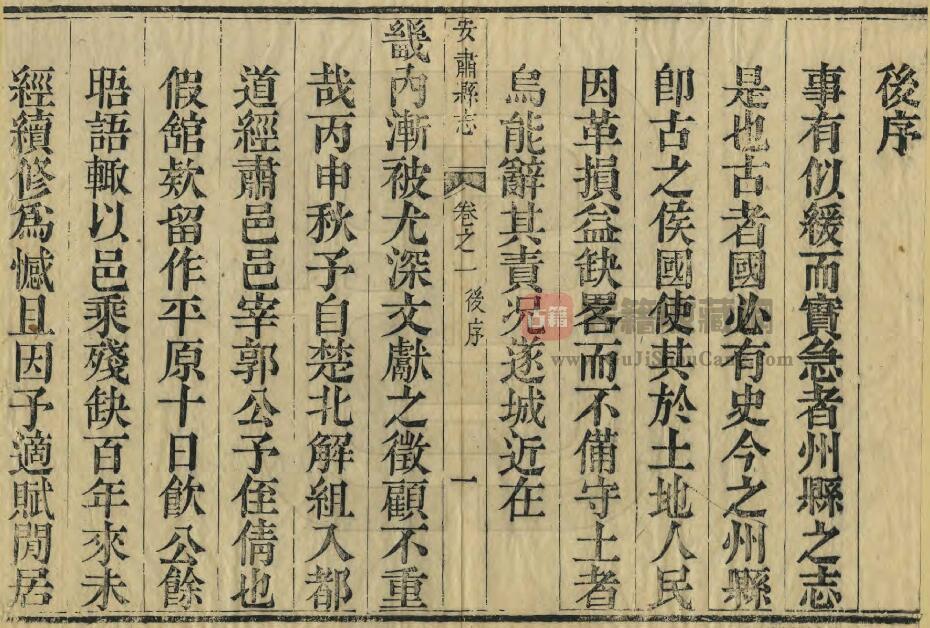 後序
事有似緩而實急者州縣之志
是也古者國必有史今之州縣
即古之侯國使其於土地人民
因革損益缺畧而不備守土者
烏能辭其責況遂城近在
安肅縣志 卷之一 後序 一
畿內漸被尤深文獻之徵顧不重
哉丙申秋予自楚北解組入都
道經肅邑邑宰郭公子侄倩也
假舘欵留作平原十日飲公餘
晤語輙以邑乘殘缺百年來未
經續修為憾且因予適賦閒居
古籍
www.GuJiShuCang.com